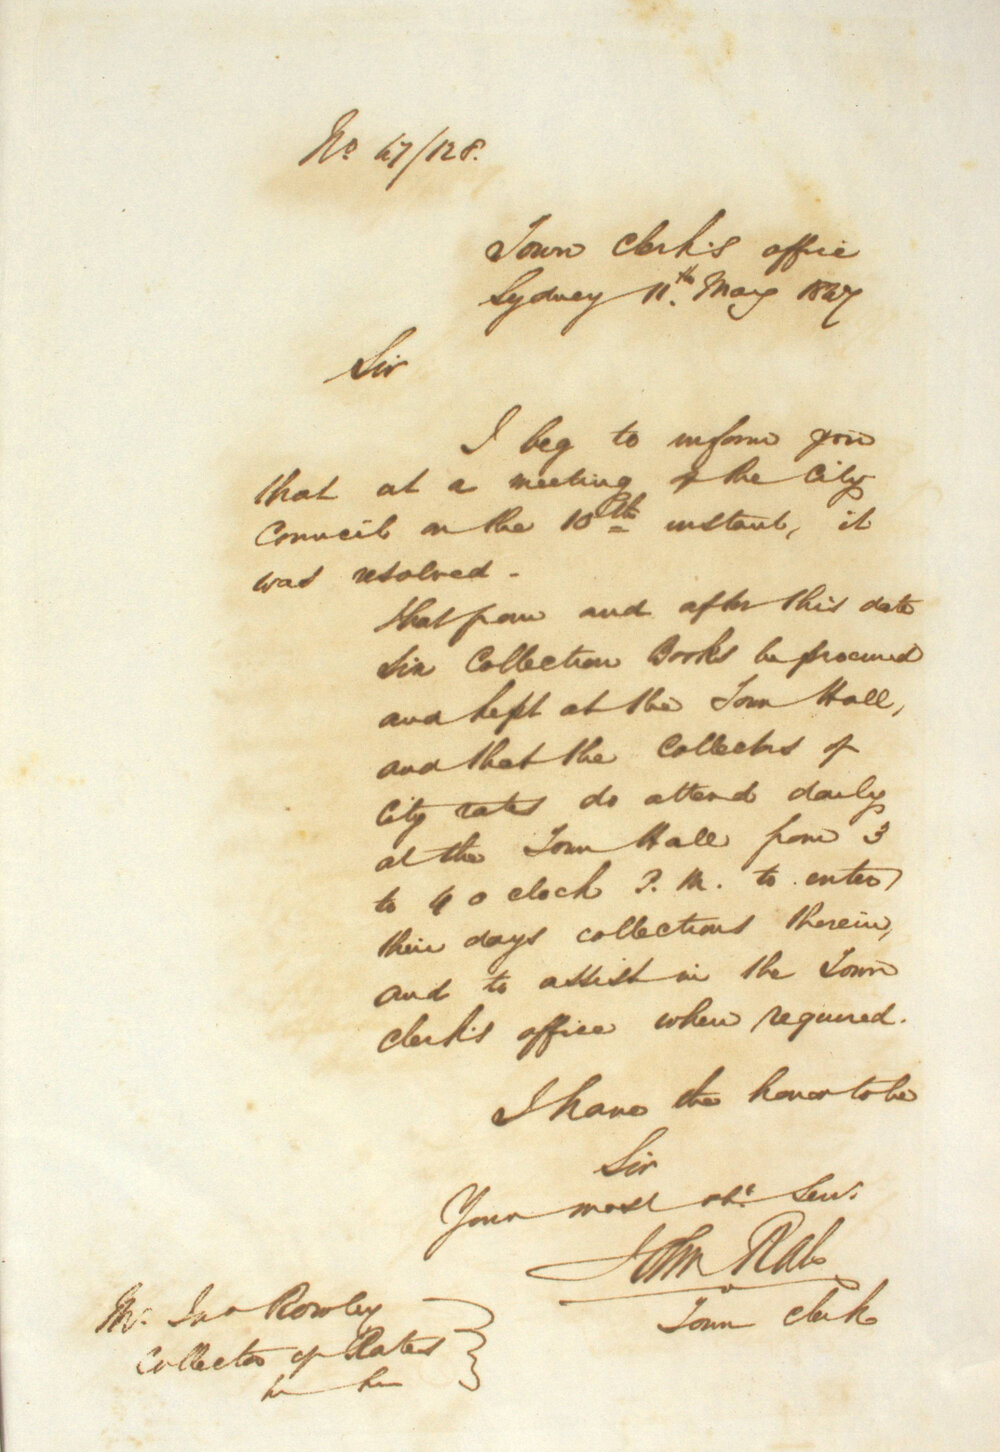 No 47/128.
Town Clerk's office
Sydney 11th May 1847
Sir
I beg to inform you
that at a meeting of the City
Council on the 10th instant, it
was resolved -
that from and after this date
six Collection Books be procured
and kept at the Town Hall,
and that the Collectors of
City rates do attend daily
at the Town Hall from 3
to 4 o clock P.M. to enter
their days collections therein,
and to assist in the Town
Clerk's office when required.
I have the honor to be
Sir
Your most obt. Serv.
John Rae
Town Clerk
Mr. Jno Rowley
Collector of Rates